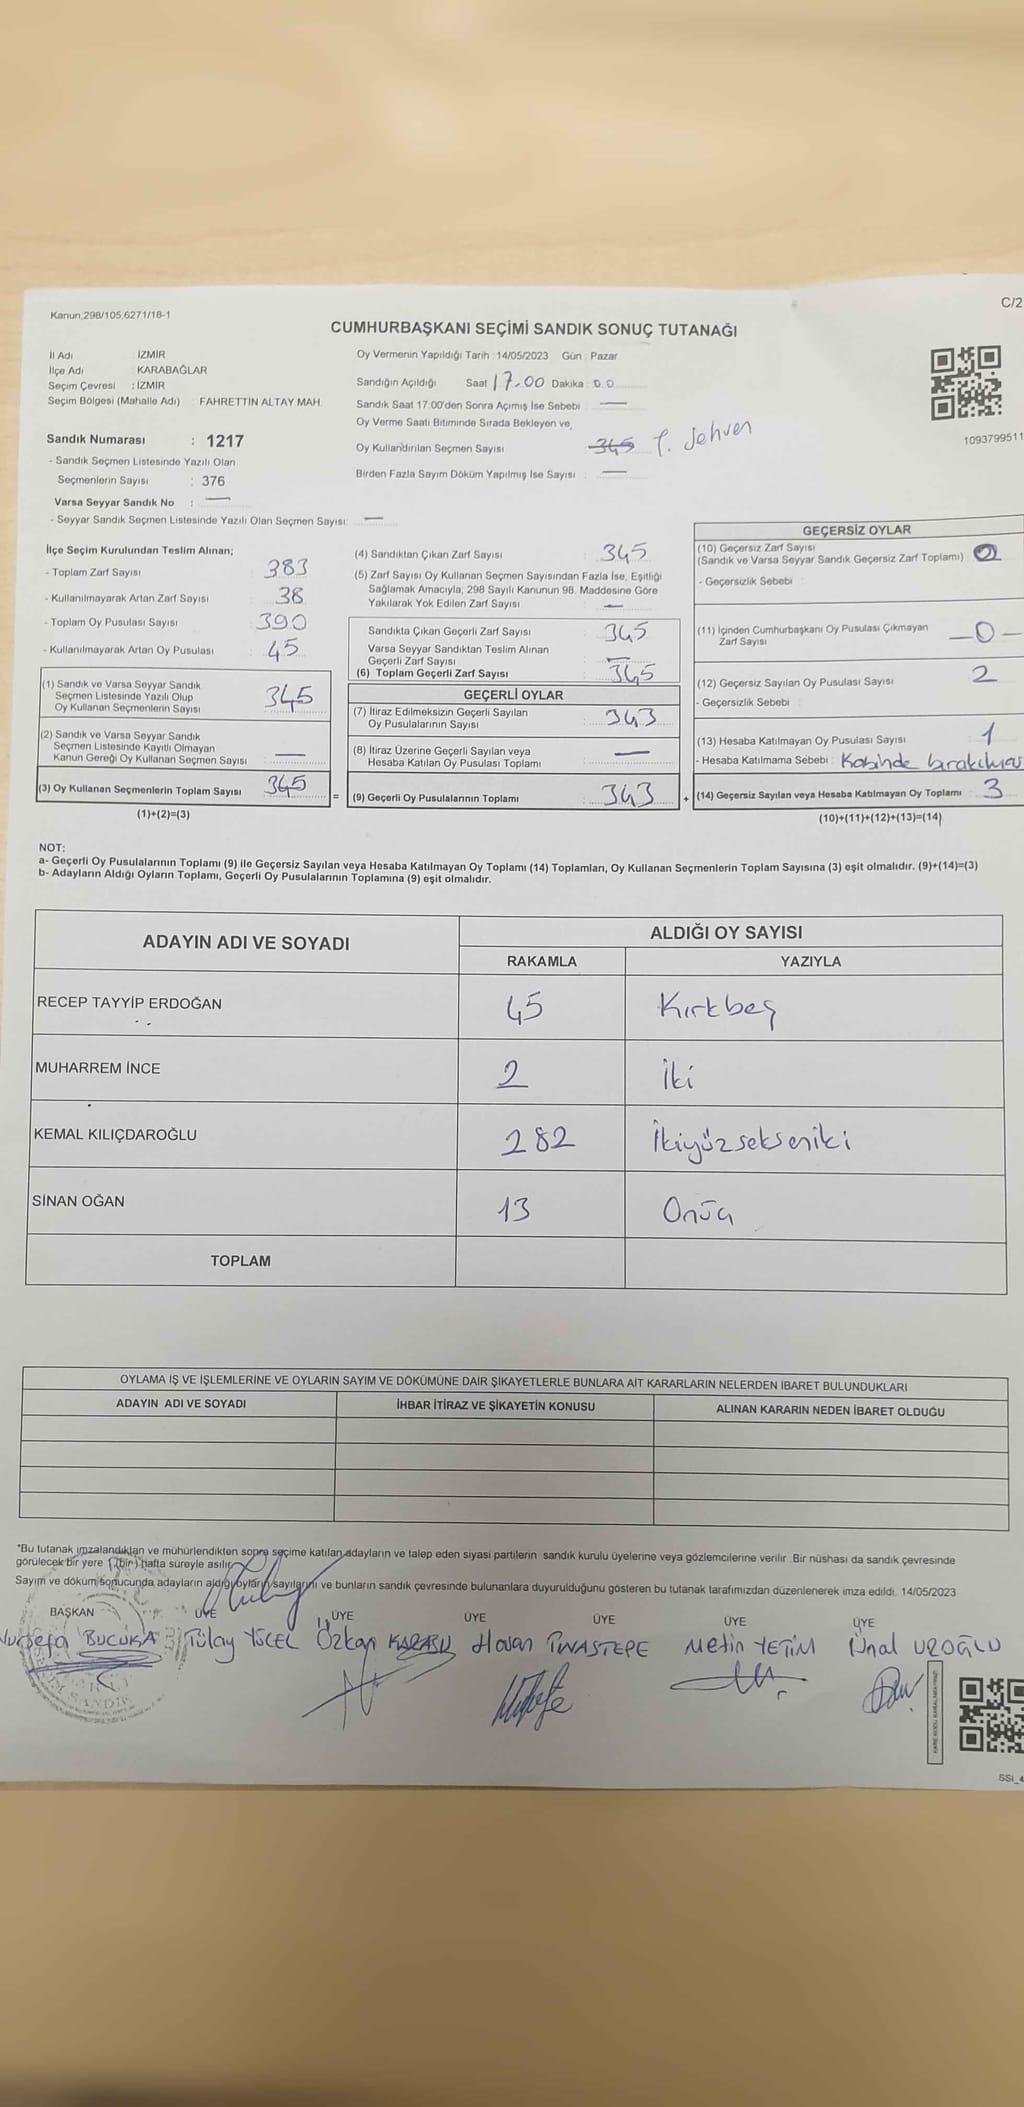 Kanun,298/105,6271/18-1
C/2
CUMHURBAŞKANI SEÇİMİ SANDIK SONUÇ TUTANAĞI
İl Adı : İZMİR
İlçe Adı : KARABAĞLAR
Seçim Çevresi : İZMİR
Seçim Bölgesi (Mahalle Adı) : FAHRETTİN ALTAY MAH.
Sandık Numarası : 1217
- Sandık Seçmen Listesinde Yazılı Olan
Seçmenlerin Sayısı : 376
Varsa Seyyar Sandık No : —
- Seyyar Sandık Seçmen Listesinde Yazılı Olan Seçmen Sayısı: —
Oy Vermenin Yapıldığı Tarih : 14/05/2023 Gün : Pazar
Sandığın Açıldığı Saat 17.00 Dakika : 0.0
Sandık Saat 17:00'den Sonra Açımış İse Sebebi : —
Oy Verme Saati Bitiminde Sırada Bekleyen ve,
Oy Kullandırılan Seçmen Sayısı : 345 Sehven
Birden Fazla Sayım Döküm Yapılmış İse Sayısı : —
1093799511
İlçe Seçim Kurulundan Teslim Alınan;
- Toplam Zarf Sayısı : 383
- Kullanılmayarak Artan Zarf Sayısı : 38
- Toplam Oy Pusulası Sayısı : 390
- Kullanılmayarak Artan Oy Pusulası : 45
(1) Sandık ve Varsa Seyyar Sandık
Seçmen Listesinde Yazılı Olup
Oy Kullanan Seçmenlerin Sayısı : 345
(2) Sandık ve Varsa Seyyar Sandık
Seçmen Listesinde Kayıtlı Olmayan
Kanun Gereği Oy Kullanan Seçmen Sayısı : —
(3) Oy Kullanan Seçmenlerin Toplam Sayısı : 345
(1)+(2)=(3)
(4) Sandıktan Çıkan Zarf Sayısı : 345
(5) Zarf Sayısı Oy Kullanan Seçmen Sayısından Fazla İse, Eşitliği
Sağlamak Amacıyla; 298 Sayılı Kanunun 98. Maddesine Göre
Yakılarak Yok Edilen Zarf Sayısı : —
Sandıkta Çıkan Geçerli Zarf Sayısı : 345
Varsa Seyyar Sandıktan Teslim Alınan
Geçerli Zarf Sayısı : —
(6) Toplam Geçerli Zarf Sayısı : 345
GEÇERLİ OYLAR
(7) İtiraz Edilmeksizin Geçerli Sayılan
Oy Pusulalarının Sayısı : 343
(8) İtiraz Üzerine Geçerli Sayılan veya
Hesaba Katılan Oy Pusulası Toplamı : —
= (9) Geçerli Oy Pusulalarının Toplamı : 343
GEÇERSİZ OYLAR
(10) Geçersiz Zarf Sayısı
(Sandık ve Varsa Seyyar Sandık Geçersiz Zarf Toplamı) :
- Geçersizlik Sebebi :
(11) İçinden Cumhurbaşkanı Oy Pusulası Çıkmayan
Zarf Sayısı : —0—
(12) Geçersiz Sayılan Oy Pusulası Sayısı : 2
- Geçersizlik Sebebi :
(13) Hesaba Katılmayan Oy Pusulası Sayısı : 1
- Hesaba Katılmama Sebebi : Kabinde bırakılması
+ (14) Geçersiz Sayılan veya Hesaba Katılmayan Oy Toplamı : 3
(10)+(11)+(12)+(13)=(14)
NOT:
a- Geçerli Oy Pusulalarının Toplamı (9) ile Geçersiz Sayılan veya Hesaba Katılmayan Oy Toplamı (14) Toplamları, Oy Kullanan Seçmenlerin Toplam Sayısına (3) eşit olmalıdır. (9)+(14)=(3)
b- Adayların Aldığı Oyların Toplamı, Geçerli Oy Pusulalarının Toplamına (9) eşit olmalıdır.
ADAYIN ADI VE SOYADI ALDIĞI OY SAYISI
RAKAMLA YAZIYLA
RECEP TAYYİP ERDOĞAN 45 Kırkbeş
MUHARREM İNCE 2 İki
KEMAL KILIÇDAROĞLU 282 İkiyüzsekseniki
SİNAN OĞAN 13 Onüç
TOPLAM
OYLAMA İŞ VE İŞLEMLERİNE VE OYLARIN SAYIM VE DÖKÜMÜNE DAİR ŞİKAYETLERLE BUNLARA AİT KARARLARIN NELERDEN İBARET BULUNDUKLARI
ADAYIN ADI VE SOYADI İHBAR İTİRAZ VE ŞİKAYETİN KONUSU ALINAN KARARIN NEDEN İBARET OLDUĞU
*Bu tutanak imzalandıktan ve mühürlendikten sonra seçime katılan adayların ve talep eden siyasi partilerin sandık kurulu üyelerine veya gözlemcilerine verilir. Bir nüshası da sandık çevresinde
görülecek bir yere 1 (bir) hafta süreyle asılır.
Sayım ve döküm sonucunda adayların aldığı oyların sayılarını ve bunların sandık çevresinde bulunanlara duyurulduğunu gösteren bu tutanak tarafımızdan düzenlenerek imza edildi. 14/05/2023
BAŞKAN ÜYE ÜYE ÜYE ÜYE ÜYE ÜYE
BUCUKA Tülay YÜCEL Özkan KARASU Hasan Metin YETİM Ünal
KARE KODU KARALAMAYINIZ
SSI_4